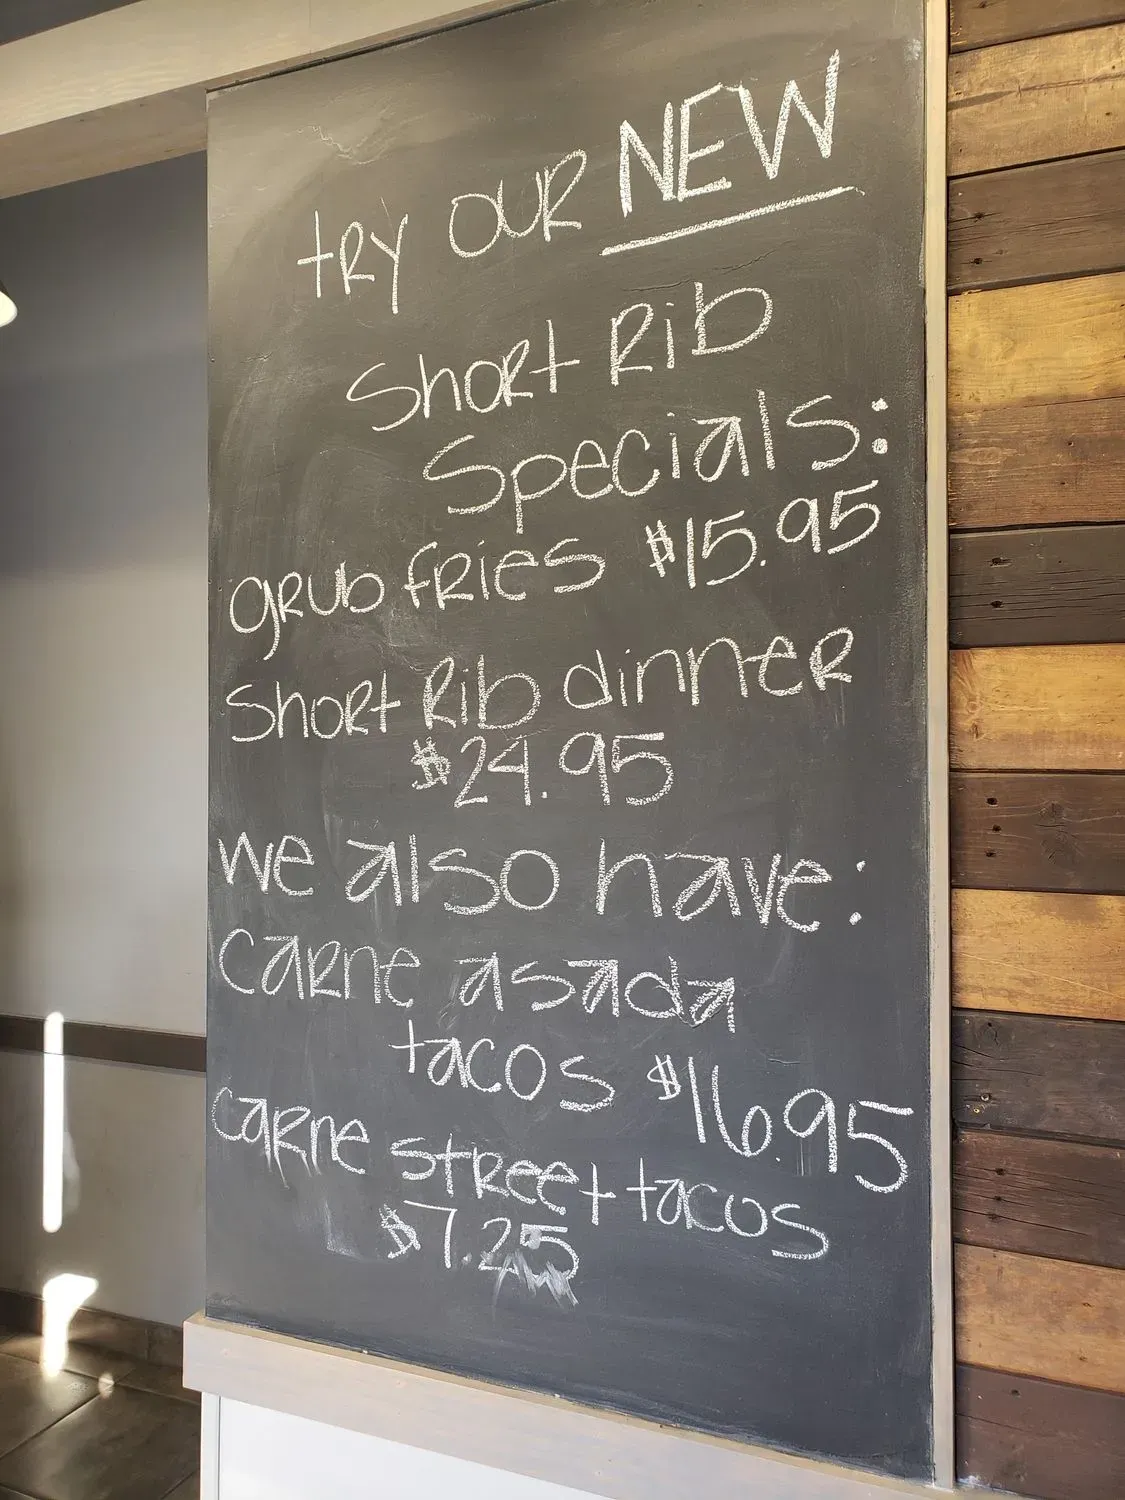 try our NEW
Short Rib
Specials:
grub fries $15.95
Short Rib dinner
$24.95
we also have:
carne asada
tacos $16.95
carne street tacos
$7.25